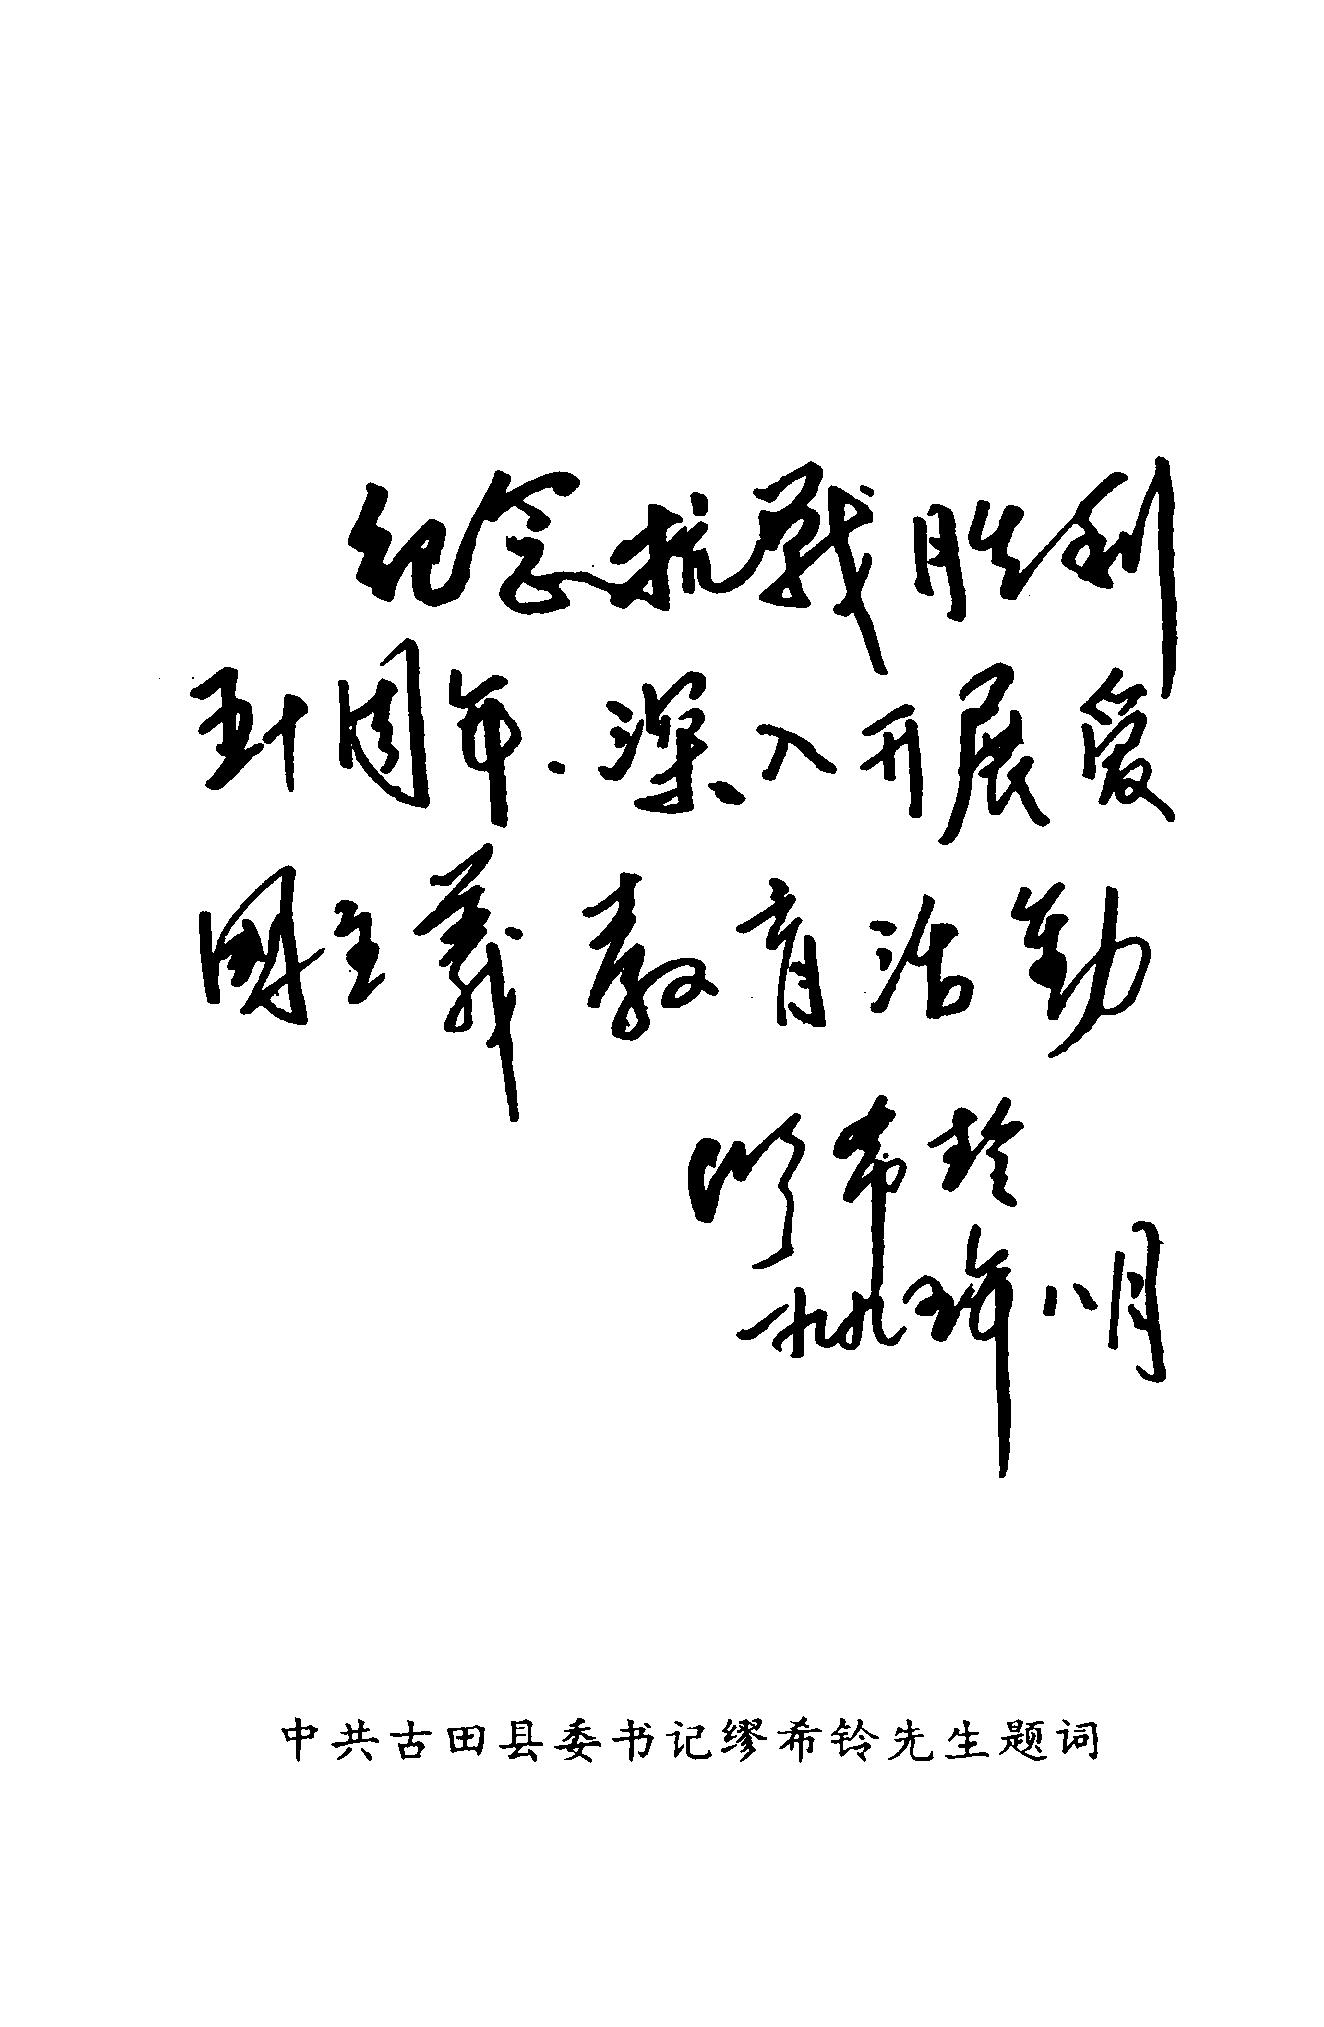 纪念抗戰胜利
五十周年.深入开展爱
國主義教育活動
缪希铃
一九九五年八月
中共古田县委书记缪希铃先生题词